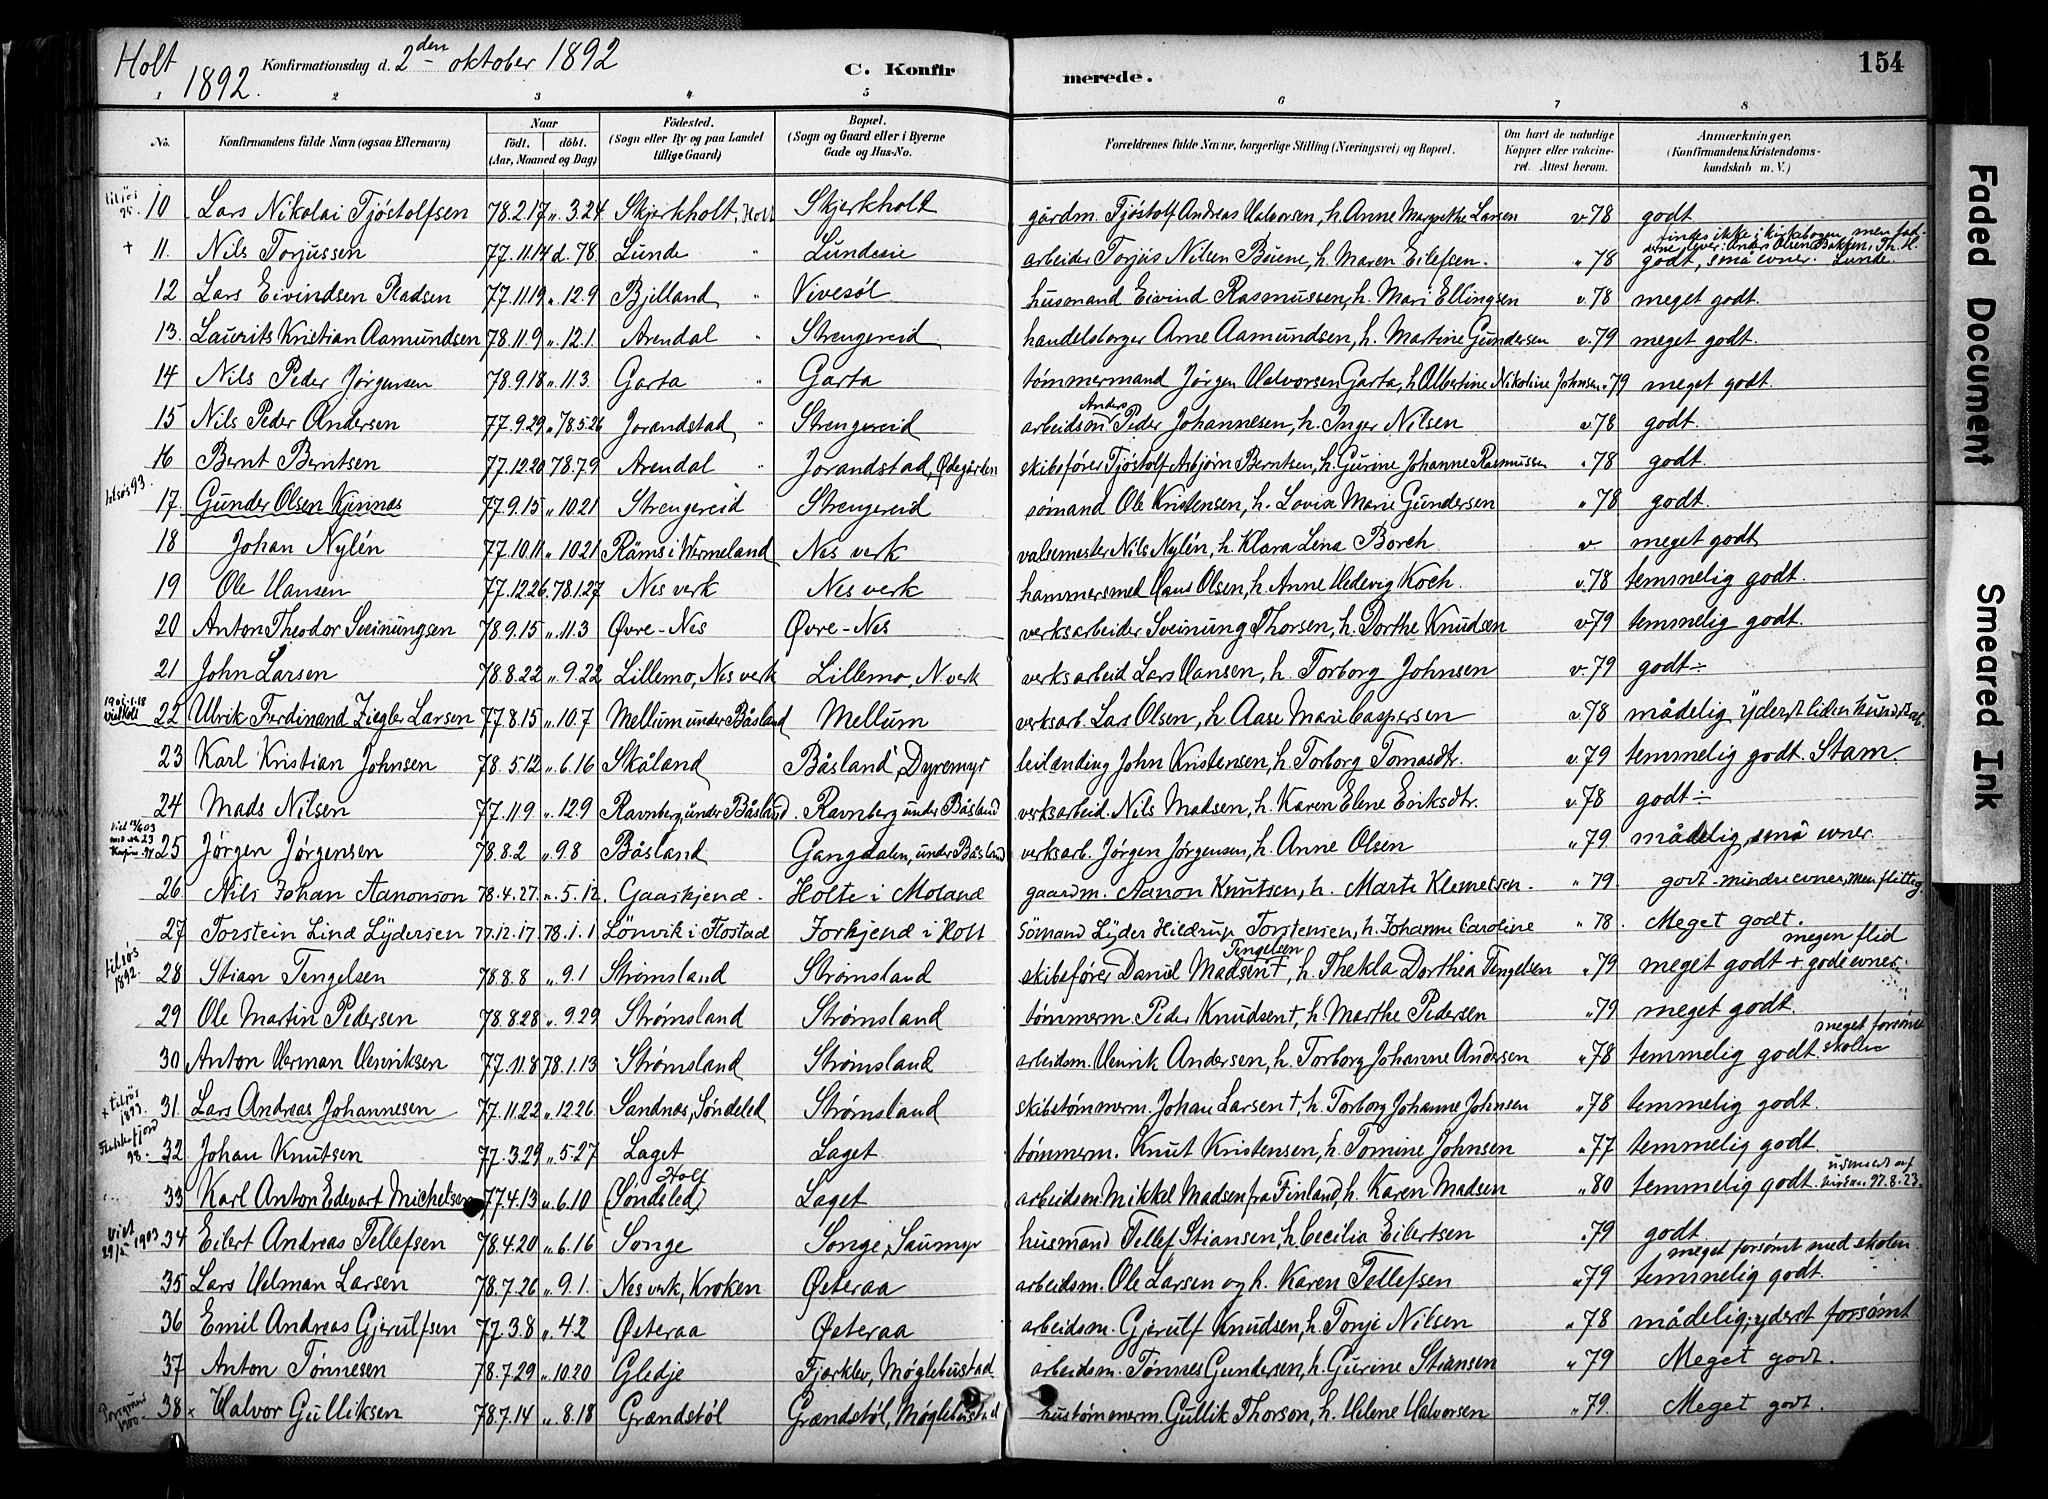 Holt 1892. Konfirmationsdag d. 2den oktober 1892 C. Konfirmerede. 154
1 2 3 4 5 6 7 8
No. Konfirmandens fulde Navn (ogsaa Efternavn) Naar födt. döbt. (Aar, Maaned og Dag) Födested. (Sogn eller By og paa Landet tillige Gaard) Bopæl. (Sogn og Gaard eller i Byerne Gade og Hus-No.) Forældrenes fulde Navne, borgerlige Stilling (Næringsvei) og Bopæl. Om havt de naturlige Kopper eller vakcineret. Attest herom. Anmærkninger. (Konfirmandens Kristendomskundskab m. V.)
tilsjøs 95. 10 Lars Nikolai Tjöstolfsen 78.2.17 „ 3.24 Skjerkholt, Holt Skjerkholt gårdm. Tjöstolf Andreas Halvorsen, h. Anne Margrethe Larsen v 78 godt
+ 11. Nils Torjussen 77.11.14 d. 78 Lunde „ Lundeie arbeider Torjus Nilsen Buene, h. Maren Eilefsen. „ 78 findes ikke i kirkebogen, men faderne lever: Anders Olsen Bakken, Th. H. Lunde. godt, små evner.
12 Lars Eivindsen Rladsen 77.11.19 „ 12.9 Bjilland „ Vivesøl husmand Eivind Rasmussen, h. Mari Ellingsen v. 78 meget godt.
13. Laurits Kristian Aamundsen 78.11.9 „ 12.1. Arendal „ Strengereid handelsborger Arne Aamundsen, h. Martine Gundersen v. 79 meget godt.
14 Nils Peder Jørgensen 78.9.18 „ 11.3. Garta „ Garta tómmermand Jörgen Halvorsen Garta, h Albertine Nikoline Johnsen „ 79 meget godt.
15 Nils Peder Andersen 77.9.29 „ 78.5.26 Jorandstad „ Strengereid arbeidsm Anders Peder Johannesen, h. Inger Nilsen v. 78 godt.
16 Bernt Berntsen 77.12.20 78.7.9 Arendal „ Jorandstad, Ødegården skibsfører Tjöstolf Asbjörn Berntsen, h. Gurine Johanne Rasmussen „ 78 godt.
tilsjøs 93. 17. Gunder Olsen Kjinnas 77.9.15 „ 10.21 Strengereid Strengereid sömand Ole Kristensen, h. Lovise Marie Gundersen „ 78 godt.
18 Johan Nylén 77.10.11 „ 10.21 Räms i Wermeland Nes verk valsemester Nils Nylén, h. Klara Lena Borch v meget godt
19 Ole Hansen 77.12.26. 78.1.27 Nes verk Nes verk hammersmed Hans Olsen, h. Anne Hedevig Koch. v. 78 temmelig godt.
20 Anton Theodor Sveinungsen 78.9.15 „ 11.3 Øvre-Nes Øvre-Nes verksarbeider Sveinung Thorsen, h. Dorthe Knudsen v 79 temmelig godt.
21 John Larsen 78.8.22 „ 9.22 Lillemo, Nes verk Lillemo, N. verk verksarbeid Lars Hansen, h. Torborg Johnsen v. 79 godt ÷
1901-1-18 viet Holt 22 Ulrik Ferdinand Ziegler Larsen 77.8.15 „ 10.7 Mellum under Båsland Mellum verksarb. Lars Olsen, h. Aase Marie Caspersen v. 78 mådelig, yderst liden kundskab.
23 Karl Kristian Johnsen 78.5.12 „ 6.16 Skåland Båsland, Dyremyr leilænding John Kristensen, h. Torborg Tomasdtr. v. 79 temmelig godt. Stam.
24 Mads Nilsen 77.11.9 „ 12.9 Ravnberg under Båsland Ravnberg under Båsland verksarbeid. Nils Madsen, h. Karen Elene Eriksdtr. v. 78 godt ÷
25 Jørgen Jørgensen 78.8.2 „ 9.8 Båsland Gangdalen, under Båsland verksarb. Jørgen Jørgensen, h. Anne Olsen „ 79 mådelig, små evner.
26. Nils Johan Aanonson 78.4.27. „ 5.12. Gaaskjend. Holte i Moland gaardm. Aanon Knutsen, h. Marte Klemetsen. „ 79. godt. mindre evner, men flittig
27 Torstein Lind Lydersen 77.12.17 78.1.1 Lönvik i Flostad Forkjend i Holt Sömand Lyder Hildrup Torstensen, h. Johanne Caroline „ 78. Meget godt.
tilsjøs 1892. 28 Stian Tengelsen 78.8.8 „ 9.1 Strömsland Strömsland skibsfører Daniel Madsen Tengelsen †, h. Thekla Dorthea Tengelsen „ 79 meget godt + megen flid gode evner.
29 Ole Martin Pedersen 78.8.28 „ 9.29 Strömsland Strömsland tömmerm. Peder Knudsen †, h. Marthe Pedersen „ 79 meget godt.
30 Anton Herman Henriksen 77.11.8 78.1.13 Strömsland Strömsland arbeidsm. Henrik Andersen, h. Torborg Johanne Andersen „ 78 temmelig godt. meget forsömt skolen
x tilsjøs 1893. 31. Lars Andreas Johannesen 77.11.22 „ 12.26 Sandnæs, Söndeled Strömsland skibstömmerm. Johan Larsen †, h. Torborg Johanne Johnsen „ 78 temmelig godt.
Flekkefjord 98. 32 Johan Knutsen 77.3.29 „ 5.27 Laget Laget tömmerm. Knut Kristensen, h. Tomine Johnsen „ 77 temmelig godt
33 Karl Anton Edevart Michelsen 77.4.13 „ 6.10 Holt (Söndeled) Laget arbeidsm. Mikkel Madsen fra Finland, h. Karen Madsen „ 80 temmelig godt. udmeldt af kirken 97.8.23.
viet 29/5 1903 34 Eilert Andreas Tellefsen 78.4.20 „ 6.16 Songe Songe, Saumyr husmand Tellef Stiansen, h. Cecilia Eilertsen „ 79 godt
35 Lars Helman Larsen 78.7.26 „ 9.1. Nes verk, Kroken Østeraa arbeidsm. Ole Larsen og h. Karen Tellefsen „ 79 meget forsömt med skolen. temmelig godt.
36 Emil Andreas Gjerulfsen 77.3.8 „ 4.2 Østeraa Østeraa arbeidsm. Gjerulf Knudsen, h. Tonje Nilsen „ 78 mådelig, yderst forsömt
37 Anton Tønnesen 78.7.29 „ 10.20 Gledje Fjærklev, Møglebustad arbeidsm. Tønnes Gundersen, h. Gurine Stiansen „ 79 Meget godt.
Porsgrund 1900 38 x Halvor Gulliksen 78.7.14 „ 8.18 Grændstøl Grændstøl, Møglebustad hustømmerm. Gullik Thorson, h. Helene Halvorsen „ 79. Meget godt.
Faded Document
Smeared Ink